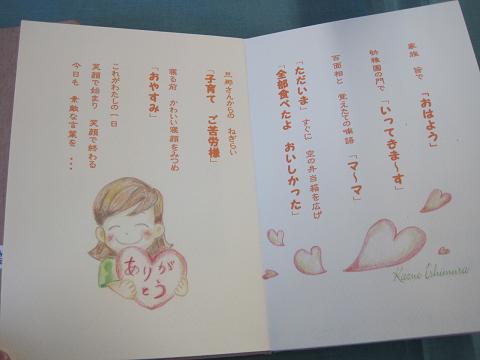 家族 皆で 「おはよう」
幼稚園の門で 「いってきまーす」
百面相と 覚えたての喃語 「マ〜マ」
「ただいま」 すぐに 空の弁当箱を広げ
「全部食べたよ おいしかった」
Kazue Ishimura
旦那さんからの ねぎらい
「子育て ご苦労様」
寝る前 かわいい寝顔をみつめ
「おやすみ」
これがわたしの一日
笑顔で始まり 笑顔で終わる
今日も 素敵な言葉を ・・・
ありが
とう